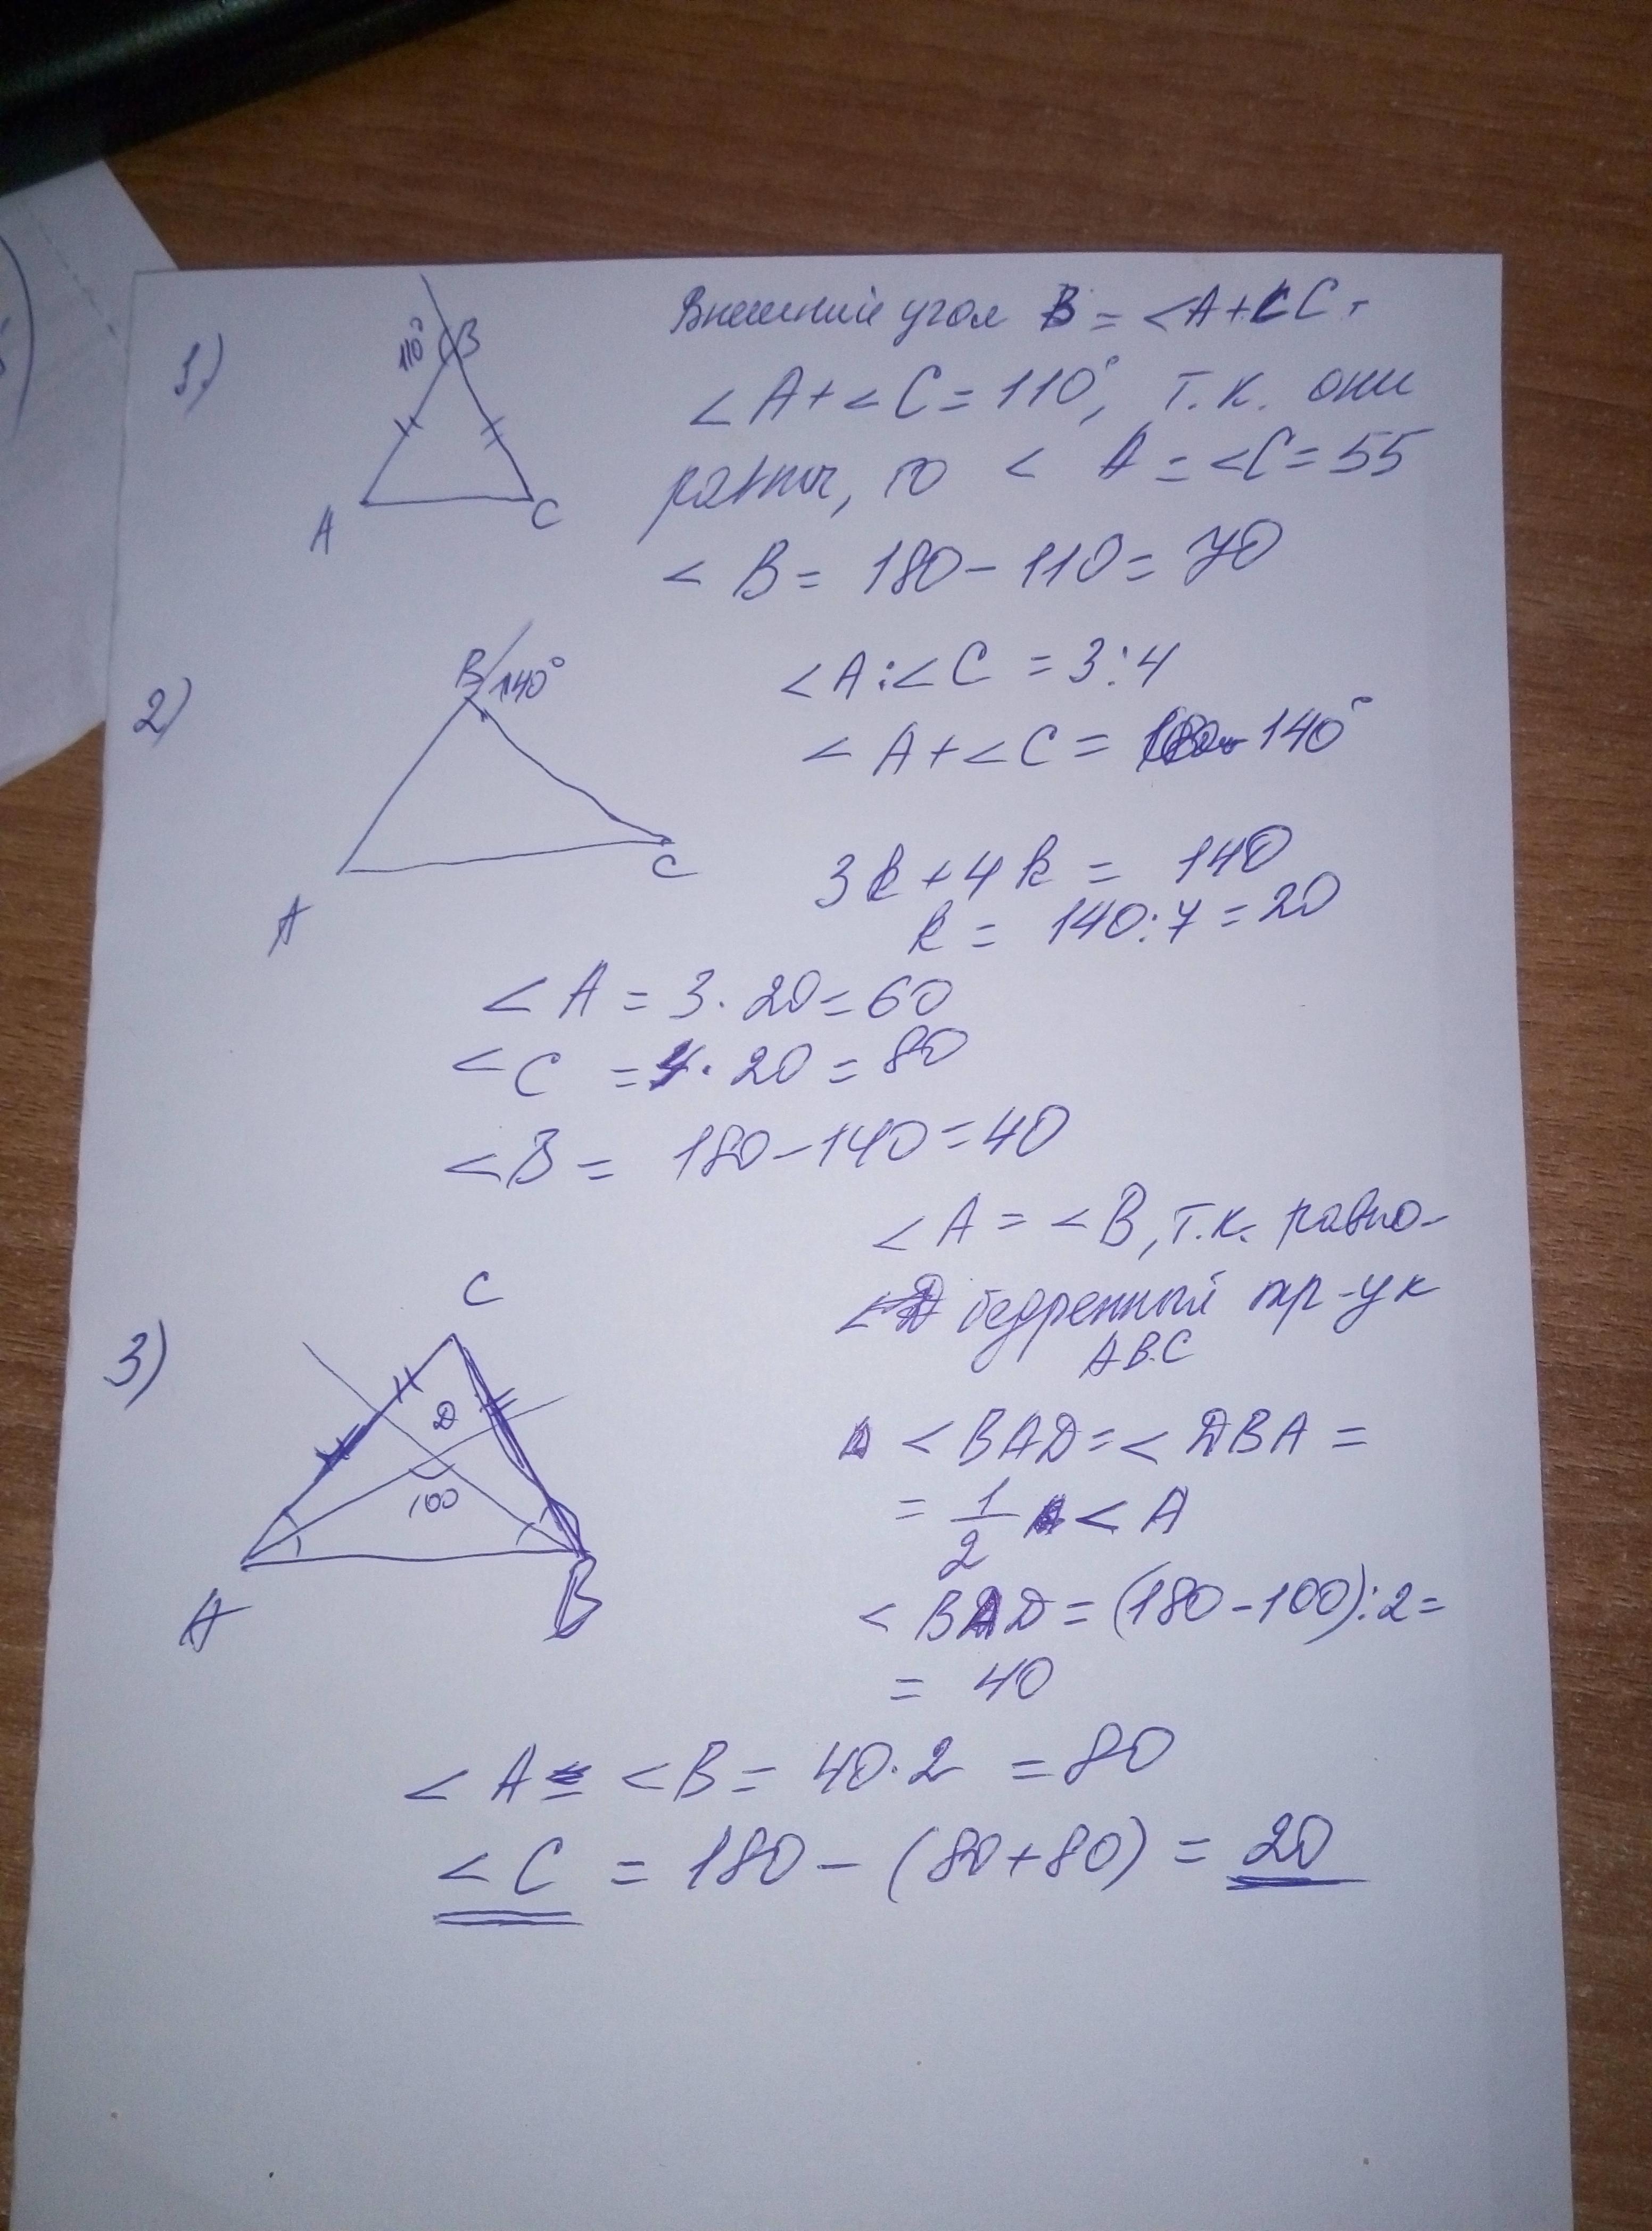 1)
110° B
A
C
Внешний угол B = <A+<C
<A+<C=110°, т.к. они
равны, то < A=<C=55
<B= 180-110=70
2)
B 140°
A
C
<A:<C = 3:4
<A+<C = 140°
3k+4k = 140
k = 140:7=20
<A = 3·20=60
<C = 4·20=80
<B= 180-140=40
3)
C
D
100
A
B
<A=<B, т.к. равно-
бедренный тр-ук
ABC
<BAD=<DBA=
= 1/2 <A
<BAD=(180-100):2=
= 40
<A = <B= 40·2 =80
<C = 180-(80+80) = 20